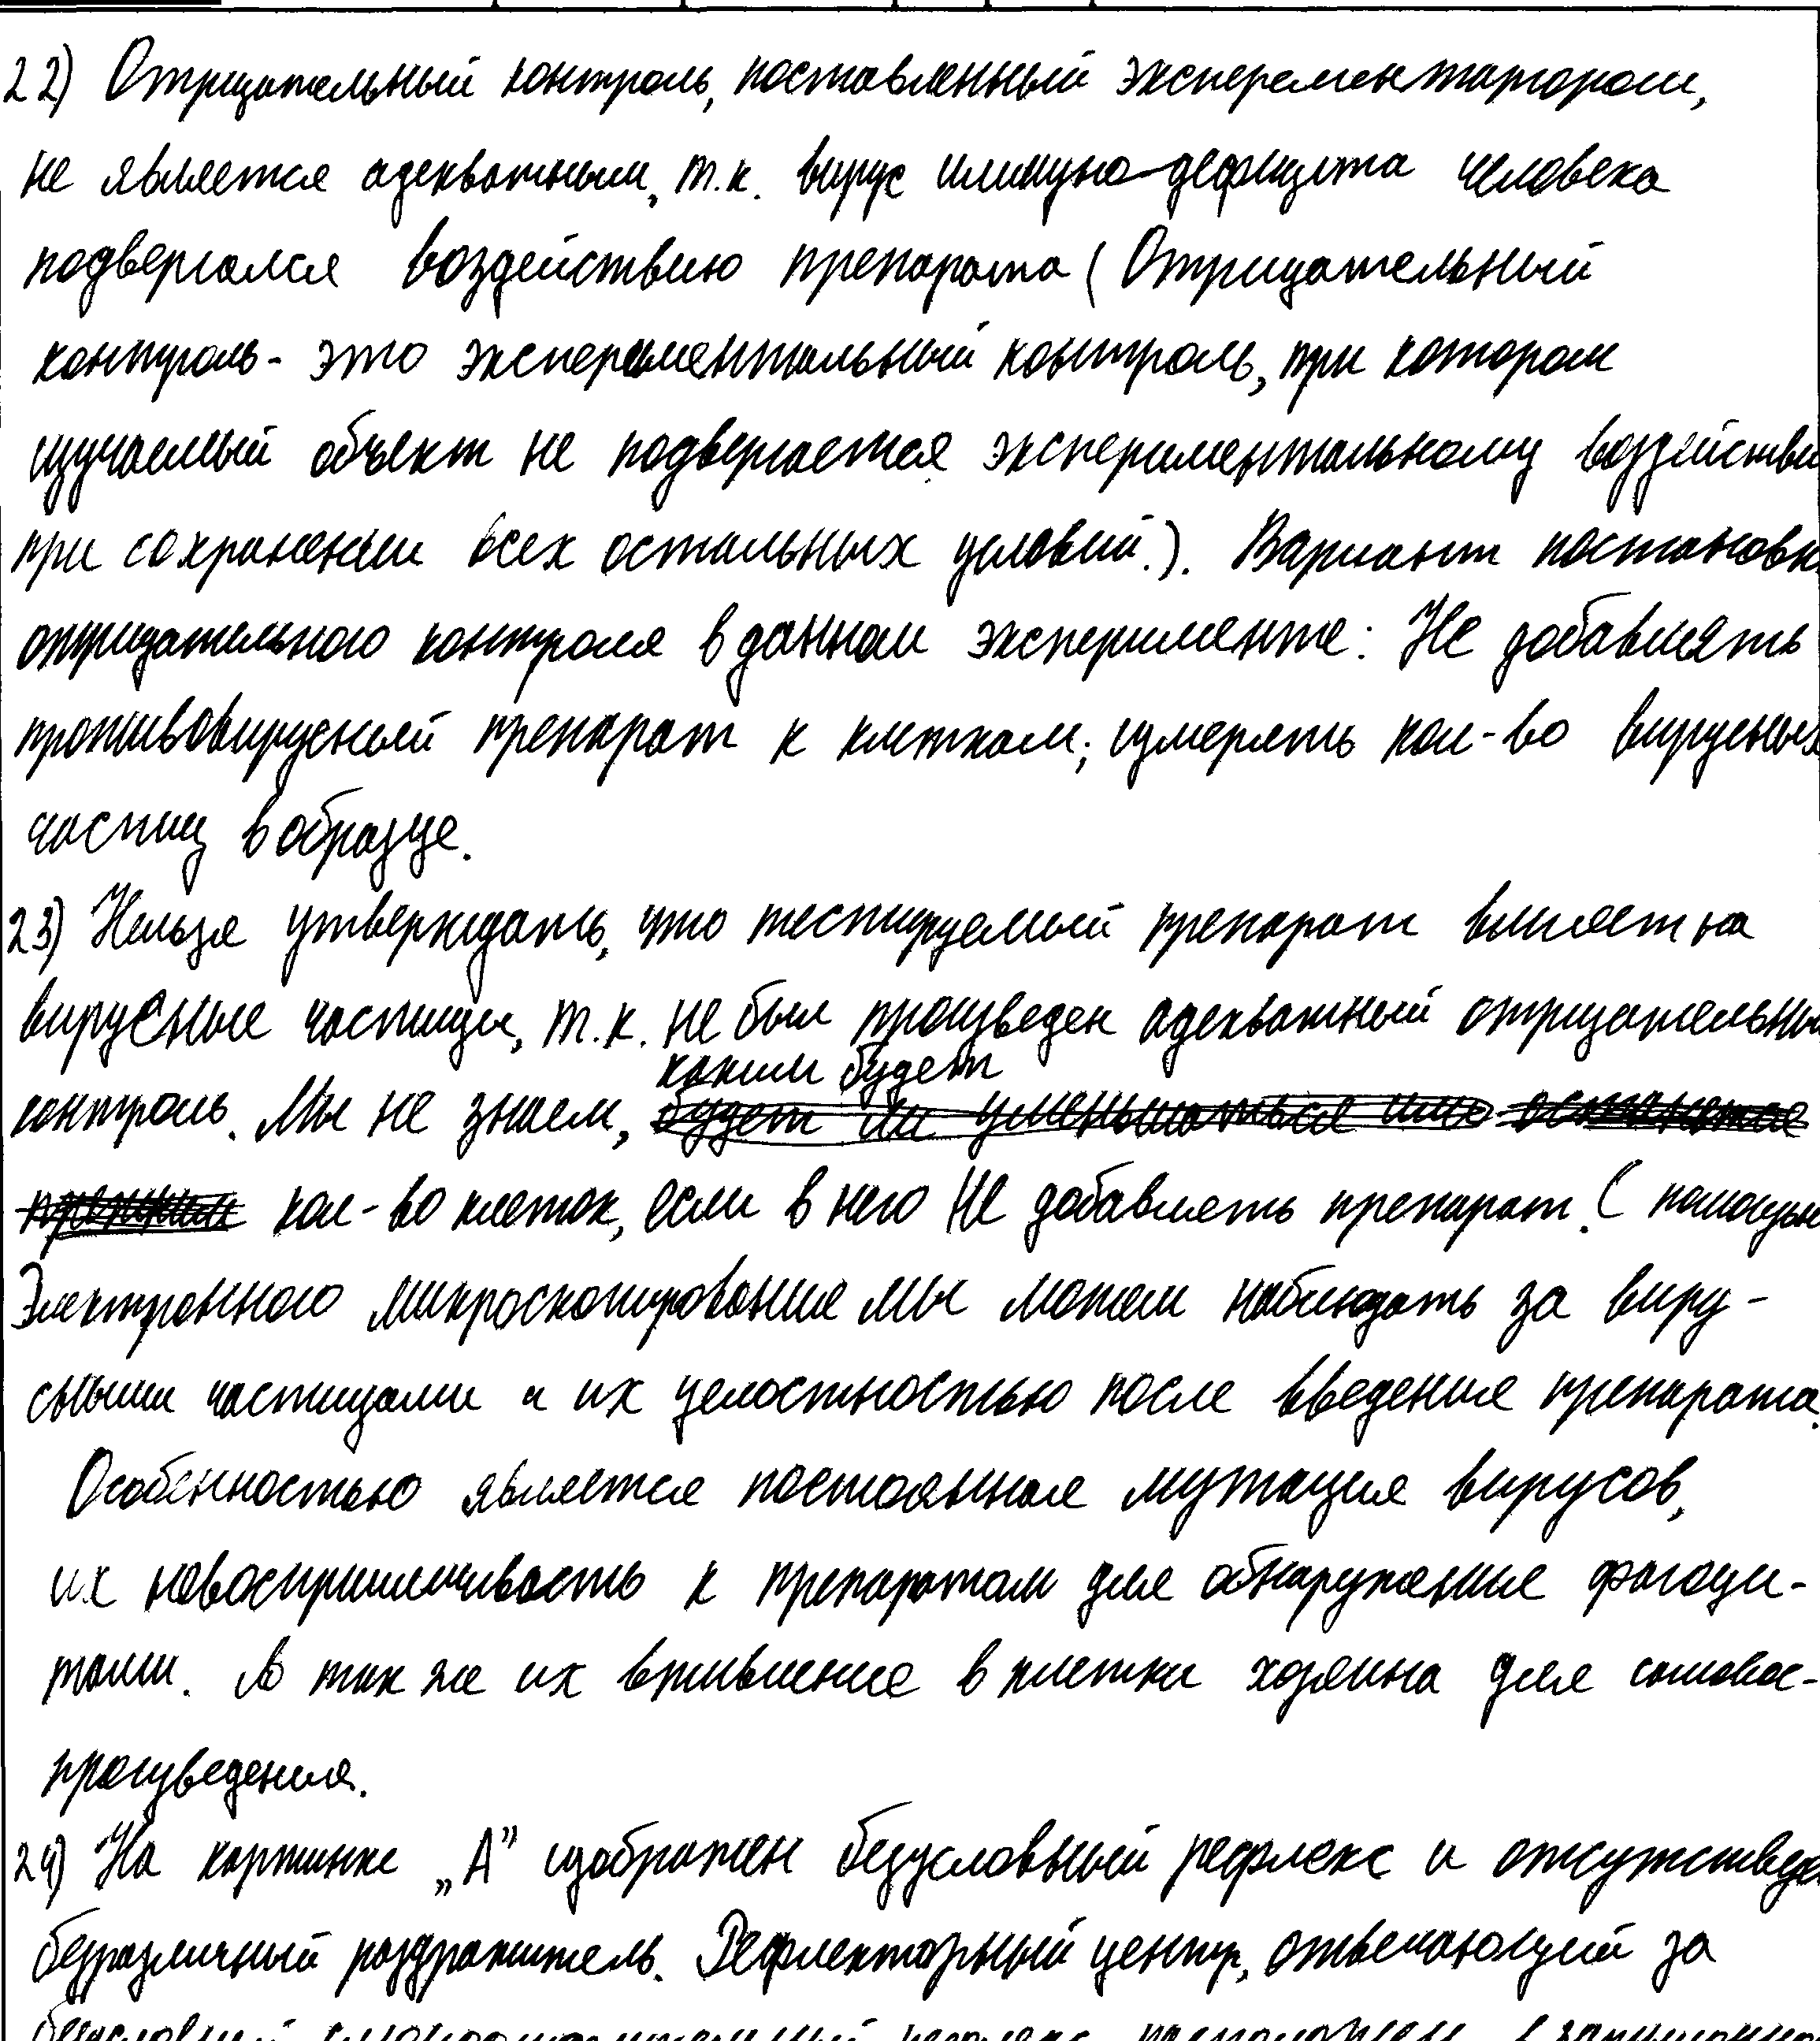 22) Отрицательный контроль, поставленный эксперементатором,
не является адекватным, т.к. вирус иммуно-дефицита человека
подвергался воздействию препарата (Отрицательный
контроль - это экспериментальный контроль, при котором
изучаемый объект не подвергается экспериментальному воздействи
при сохранении всех остальных условий.). Вариант постановк
отрицательного контроля в данном эксперименте: Не добавлять
противовирусный препарат к клеткам; измерять кол-во вирусных
частиц в образце.
23) Нельзя утверждать, что тестируемый препарат влияет на
вирусные частицы, т.к. не был произведен адекватный отрицательны
каким будет
контроль. Мы не знаем, будет ли уменьшаться или останется
прежним кол-во клеток, если в него Не добавлять препарат. С помощью
Электронного микроскопирования мы можем наблюдать за виру-
сными частицами и их целостностью после введения препарата.
Особенностью является постоянная мутация вирусов,
их невосприимчивость к препаратам для обнаружения фагоци-
тами. А так же их вживление в клетки хозяина для самовос-
произведения.
24) На картинке „А" изображен безусловный рефлекс и отсутствуе
безразличный раздражитель. Рефлекторный центр, отвечающий за
безусловный